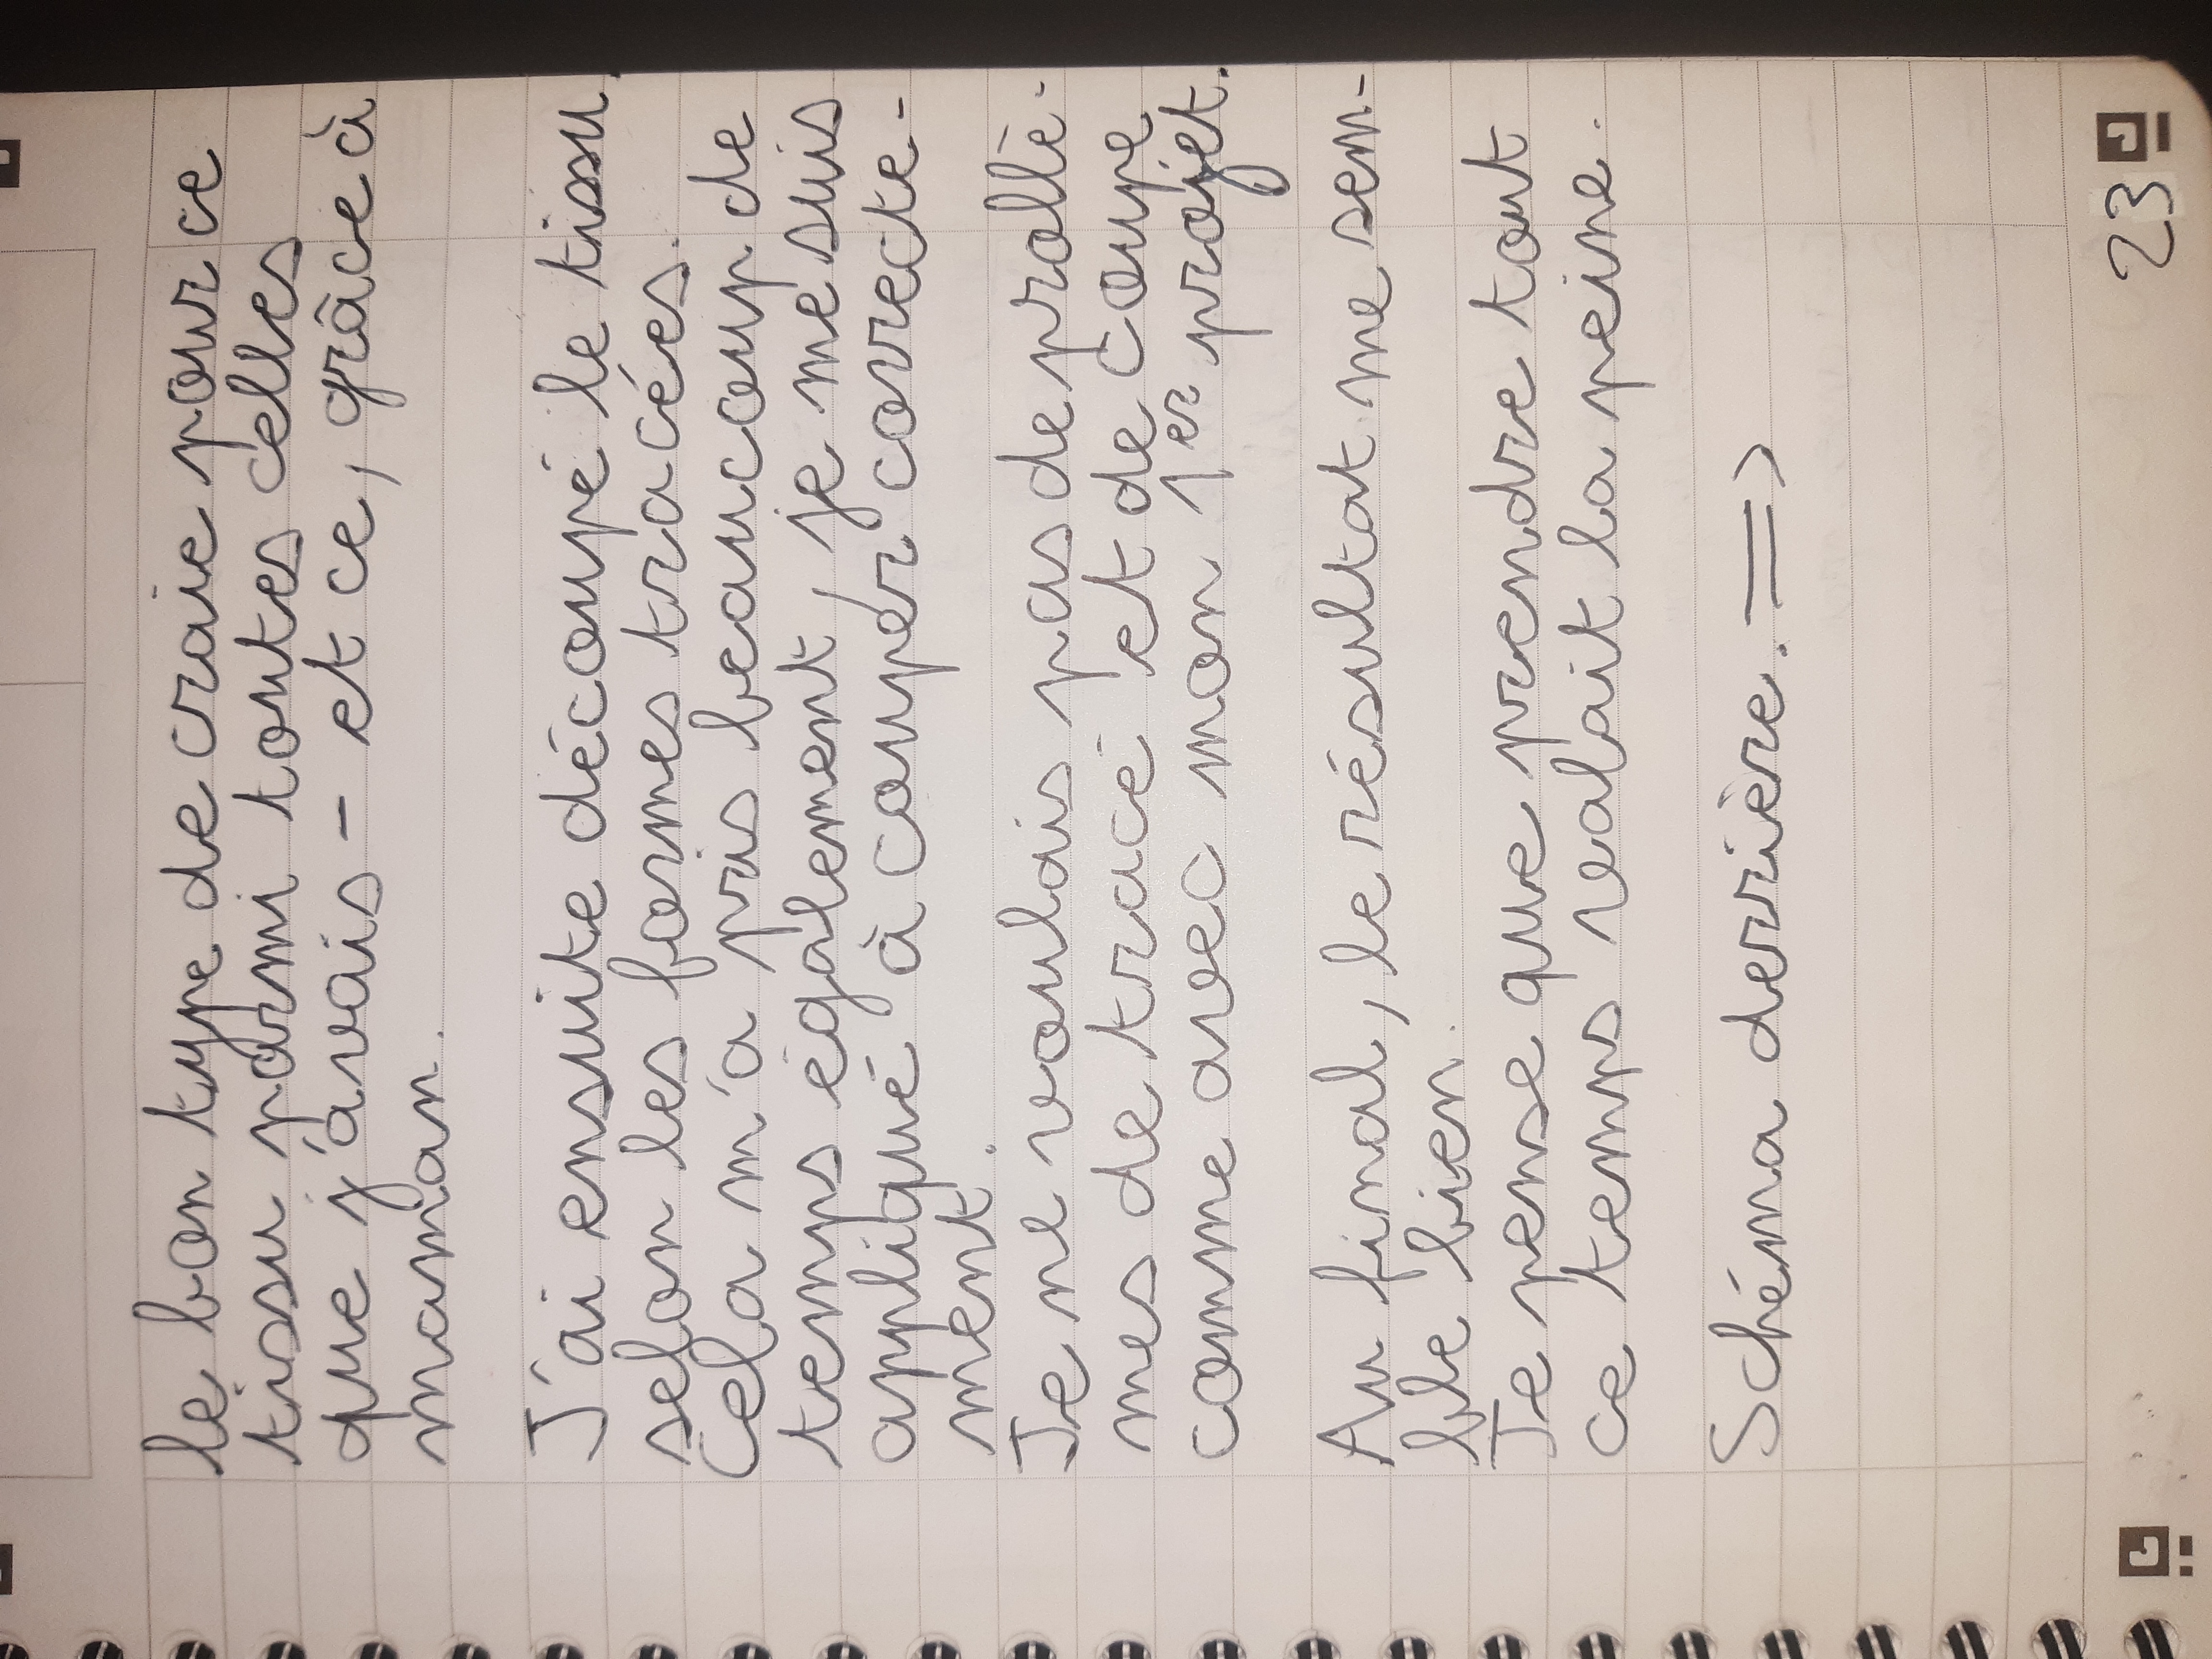 le bon type de craie pour ce
tissu parmi toutes celles
que j'avais - et ce, grâce à
maman.
J'ai ensuite découpé le tissu
selon les formes tracées.
Cela m'a pris beaucoup de
temps également, je me suis
appliqué à couper correcte-
ment.
Je ne voulais pas de problè-
mes de tracé et de coupe
comme avec mon 1er projet.
Au final, le résultat me sem-
ble bien.
Je pense que prendre tout
ce temps valait la peine.
Schéma derrière. =>
23